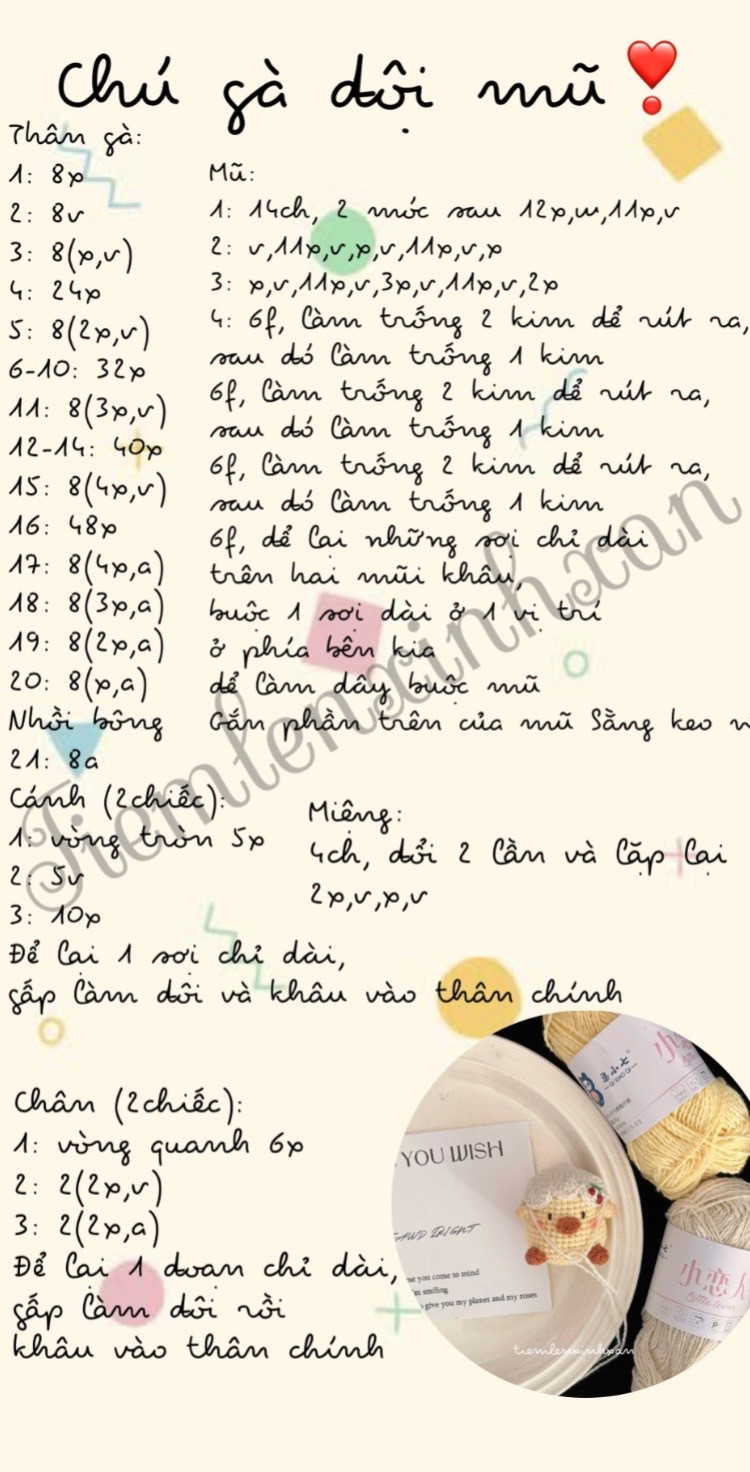 Chú gà đội mũ❣️
Thân gà:
1: 8x
2: 8v
3: 8(x,v)
4: 24x
5: 8(2x,v)
6-10: 32x
11: 8(3x,v)
12-14: 40x
15: 8(4x,v)
16: 48x
17: 8(4x,a)
18: 8(3x,a)
19: 8(2x,a)
20: 8(x,a)
Nhồi bông
21: 8a
Mũ:
1: 14ch, 2 móc sau 12x,w,11x,v
2: v,11x,v,x,v,11x,v,x
3: x,v,11x,v,3x,v,11x,v,2x
4: 6f, làm trống 2 kim để rút ra,
sau đó làm trống 1 kim
6f, làm trống 2 kim để rút ra,
sau đó làm trống 1 kim
6f, làm trống 2 kim để rút ra,
sau đó làm trống 1 kim
6f, để lại những sợi chỉ dài
trên hai mũi khâu,
buộc 1 sợi dài ở 1 vị trí
ở phía bên kia
để làm dây buộc mũ
Gắn phần trên của mũ bằng keo
Cánh (2chiếc):
1: vòng tròn 5x
2: 5v
3: 10x
Để lại 1 sợi chỉ dài,
gấp làm đôi và khâu vào thân chính
Miệng:
4ch, đổi 2 lần và lặp lại
2x,v,x,v
Chân (2chiếc):
1: vòng quanh 6x
2: 2(2x,v)
3: 2(2x,a)
Để lại 1 đoạn chỉ dài,
gấp làm đôi rồi
khâu vào thân chính
Tiemlenxinhxan
YOU WISH
me you come to mind
smiling
give you my planet and my roses
小恋人
little lover
tiemlenxinhxan